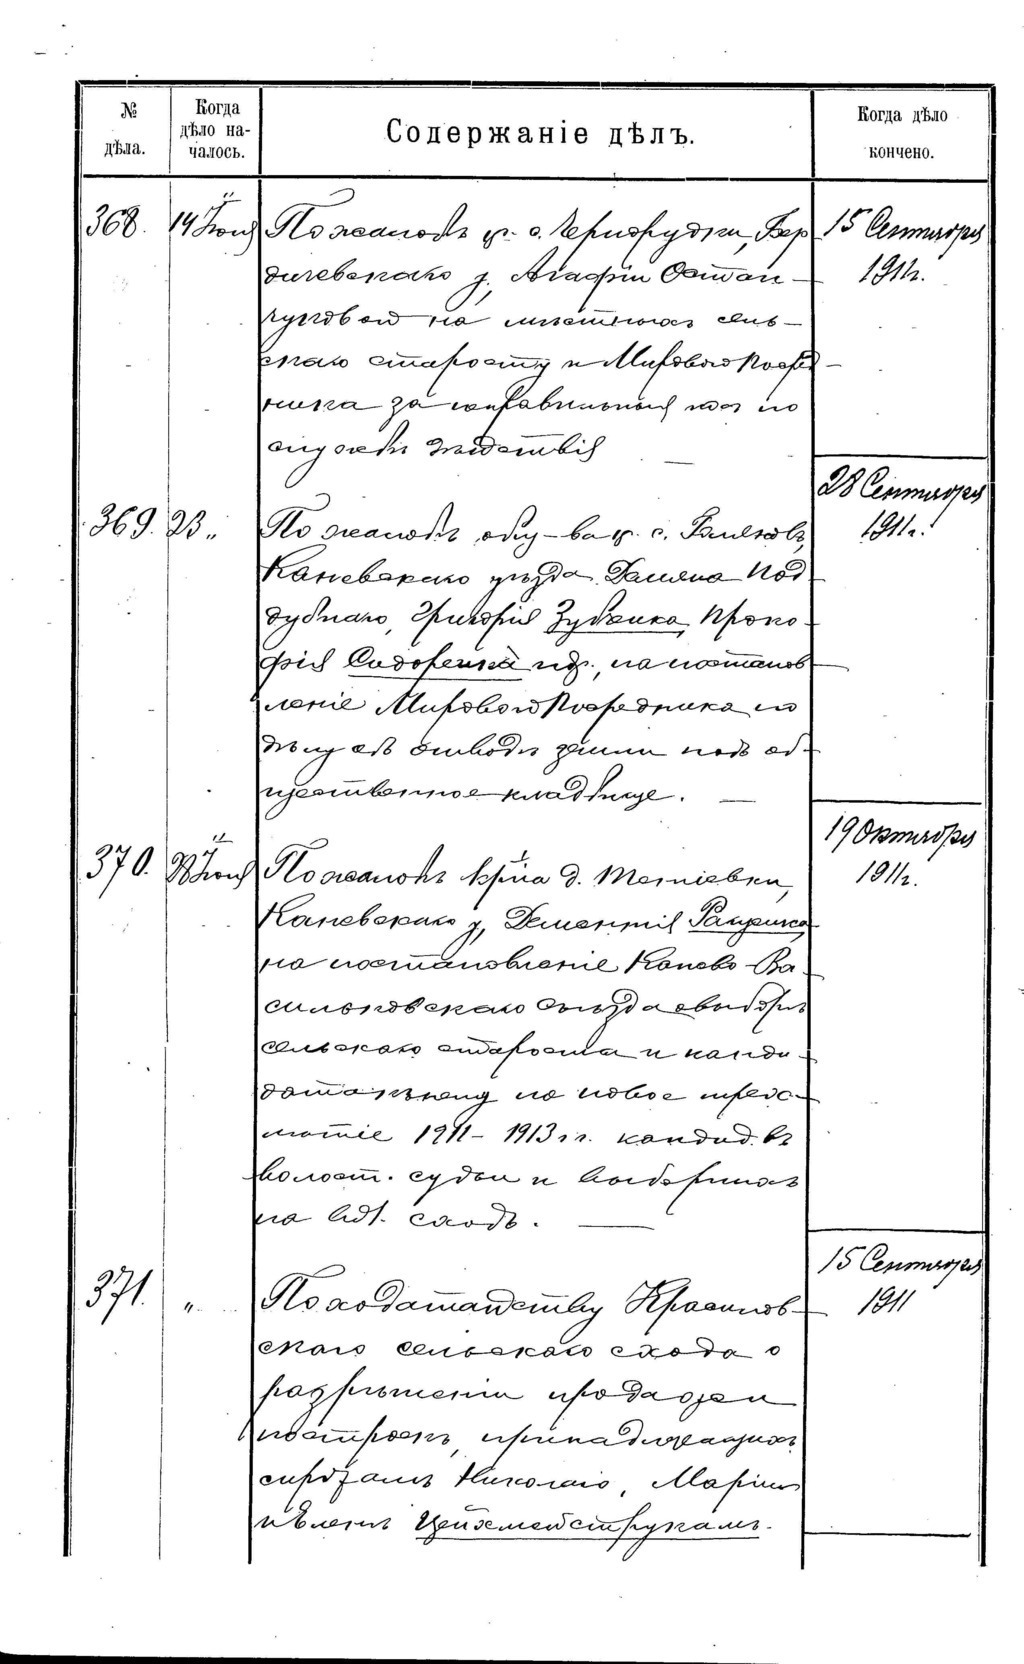 № дѣла.
Когда дѣло началось.
Содержаніе дѣлъ.
Когда дѣло кончено.
368. 14 Іюня По жалобѣ кр. с. Чернорудки, Бер 15 Сентября
дичевскаго у., Агафіи Остап- 1911г.
чуковой на мѣстнаго сель-
скаго старосту и Мирового Посред
ника за неправильныя
дѣйствія
28 Сентября
369. 23 „ По жалобѣ кр. с. 1911г.
Каневскаго уѣзда Демяна Под
дубнаго, Григорія Зубенка, Проко-
фія Сидоренка и др., на постанов
леніе Мирового Посредника по
дѣлу объ отводѣ земли подъ об-
щественное кладбище.
19 Октября
370. 28 Іюня По жалобѣ кр-на д. 1911г.
Каневскаго у., Дементія
на постановленіе Канево-Ва-
сильковскаго Съѣзда о выборѣ
сельскаго старосты и канди-
дата къ нему на новое трех-
лѣтіе 1911-1913 г.г. кандид. въ
волост. судьи и выборныхъ
на вол. сходъ.
15 Сентября
371. „ По ходатайству Красилов- 1911
скаго сельскаго схода о
разрѣшеніи продажи
построекъ, принадлежащихъ
сиротамъ Николаю, Маріи
и Еленѣ Цейхмейструкамъ.